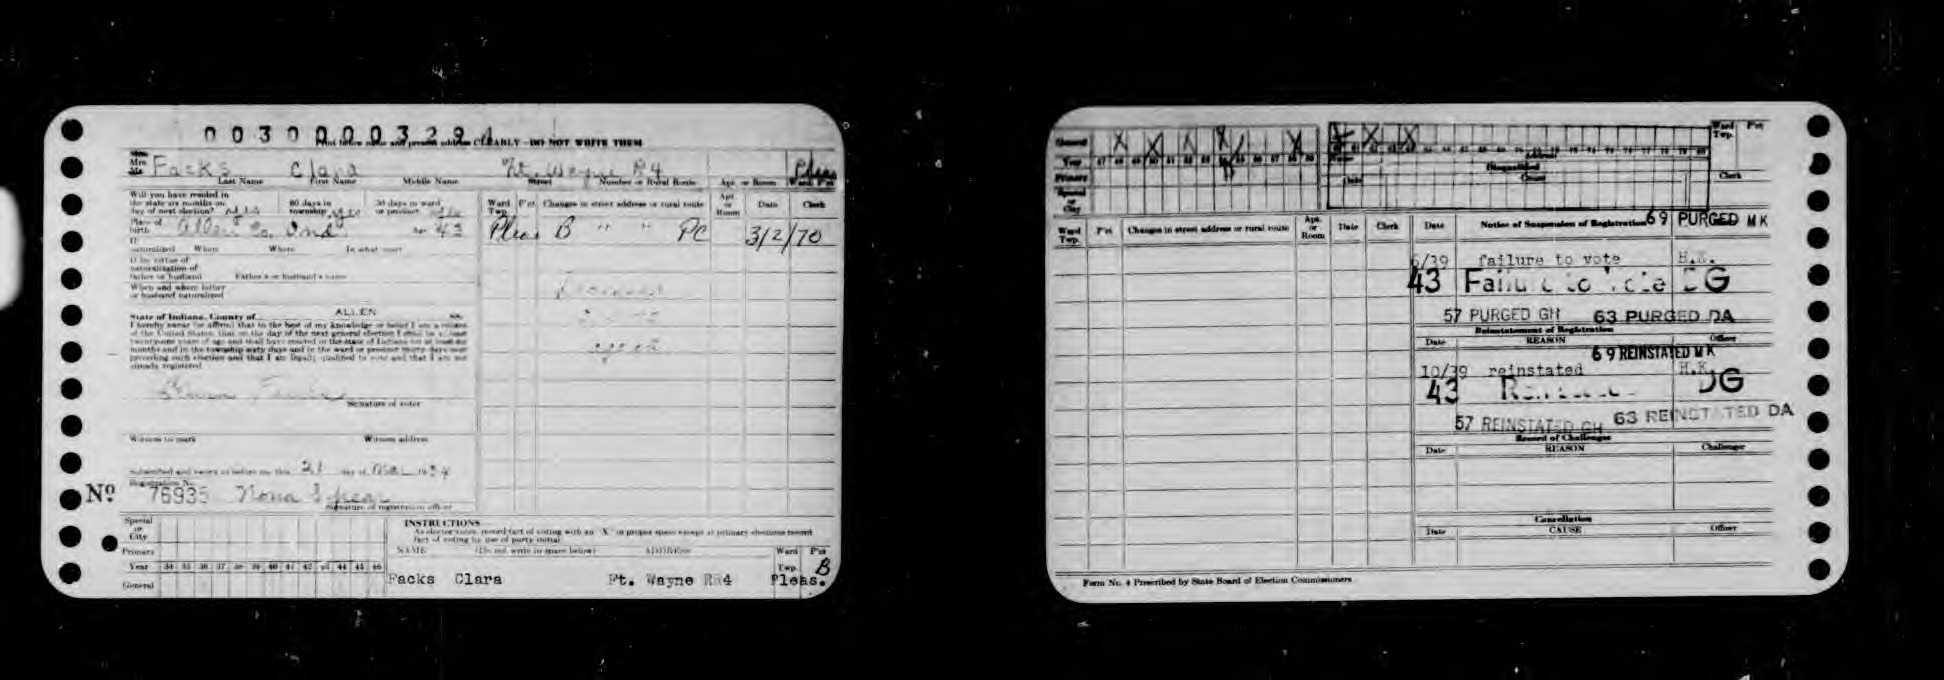 003000032
Print below name and present address CLEARLY—DO NOT WRITE THEM
Mrs. Facks Clara Ft. Wayne R4 Pleas
Last Name First Name Middle Name Street Number or Rural Route Apt. or Room Ward Pct
Will you have resided in
the state six months on
day of next election? yes
60 days in
township yes
30 days in ward
or precinct
Place of
birth Allen Co. Ind Age 43
If
naturalized When Where In what court
If by virtue of
naturalization of
father or husband Father's or husband's name
When and where father
or husband naturalized
State of Indiana, County of ALLEN ss.
I hereby swear (or affirm) that to the best of my knowledge or belief I am a citizen
of the United States, that on the day of the next general election I shall be at least
twenty-one years of age and shall have resided in the state of Indiana for at least six
months and in the township sixty days and in the ward or precinct thirty days next
preceding such election and that I am legally qualified to vote and that I am not
already registered.
Signature of voter
Witness to mark Witness address
Subscribed and sworn to before me this 21 day of Mar 1934
Registration No.
No 76935 Nona Spear
Signature of registration officer
Ward Twp. Pct Changes in street address or rural route Apt. or Room Date Clerk
Pleas B " " PC 3/2/70
Special
or
City
Primary
Year 34 35 36 37 38 39 40 41 42 43 44 45 46
General
INSTRUCTIONS
As elector votes, record fact of voting with an "X" in proper space except at primary elections record
fact of voting by use of party initial
NAME (Do not write in space below) ADDRESS Ward Twp. Pct
Facks Clara Ft. Wayne RR4 Pleas. B
General X X X X X X X X
Year 47 48 49 50 51 52 53 54 55 56 57 58 59
Primary
Special
or
City
Name Address
Disqualified
Date Cause
Ward Twp. Pct
Clerk
Ward Twp. Pct Changes in street address or rural route Apt. or Room Date Clerk
Date Notice of Suspension of Registration 69 PURGED MK
/39 failure to vote H.K.
43 Failure to Vote DG
57 PURGED GH 63 PURGED DA
Reinstatement of Registration
Date REASON Officer
69 REINSTATED MK
10/39 reinstated H.K.
43 DG
57 REINSTATED GH 63 REINSTATED DA
Record of Challenges
Date REASON Challenger
Cancellation
Date CAUSE Officer
Form No. 4 Prescribed by State Board of Election Commissioners